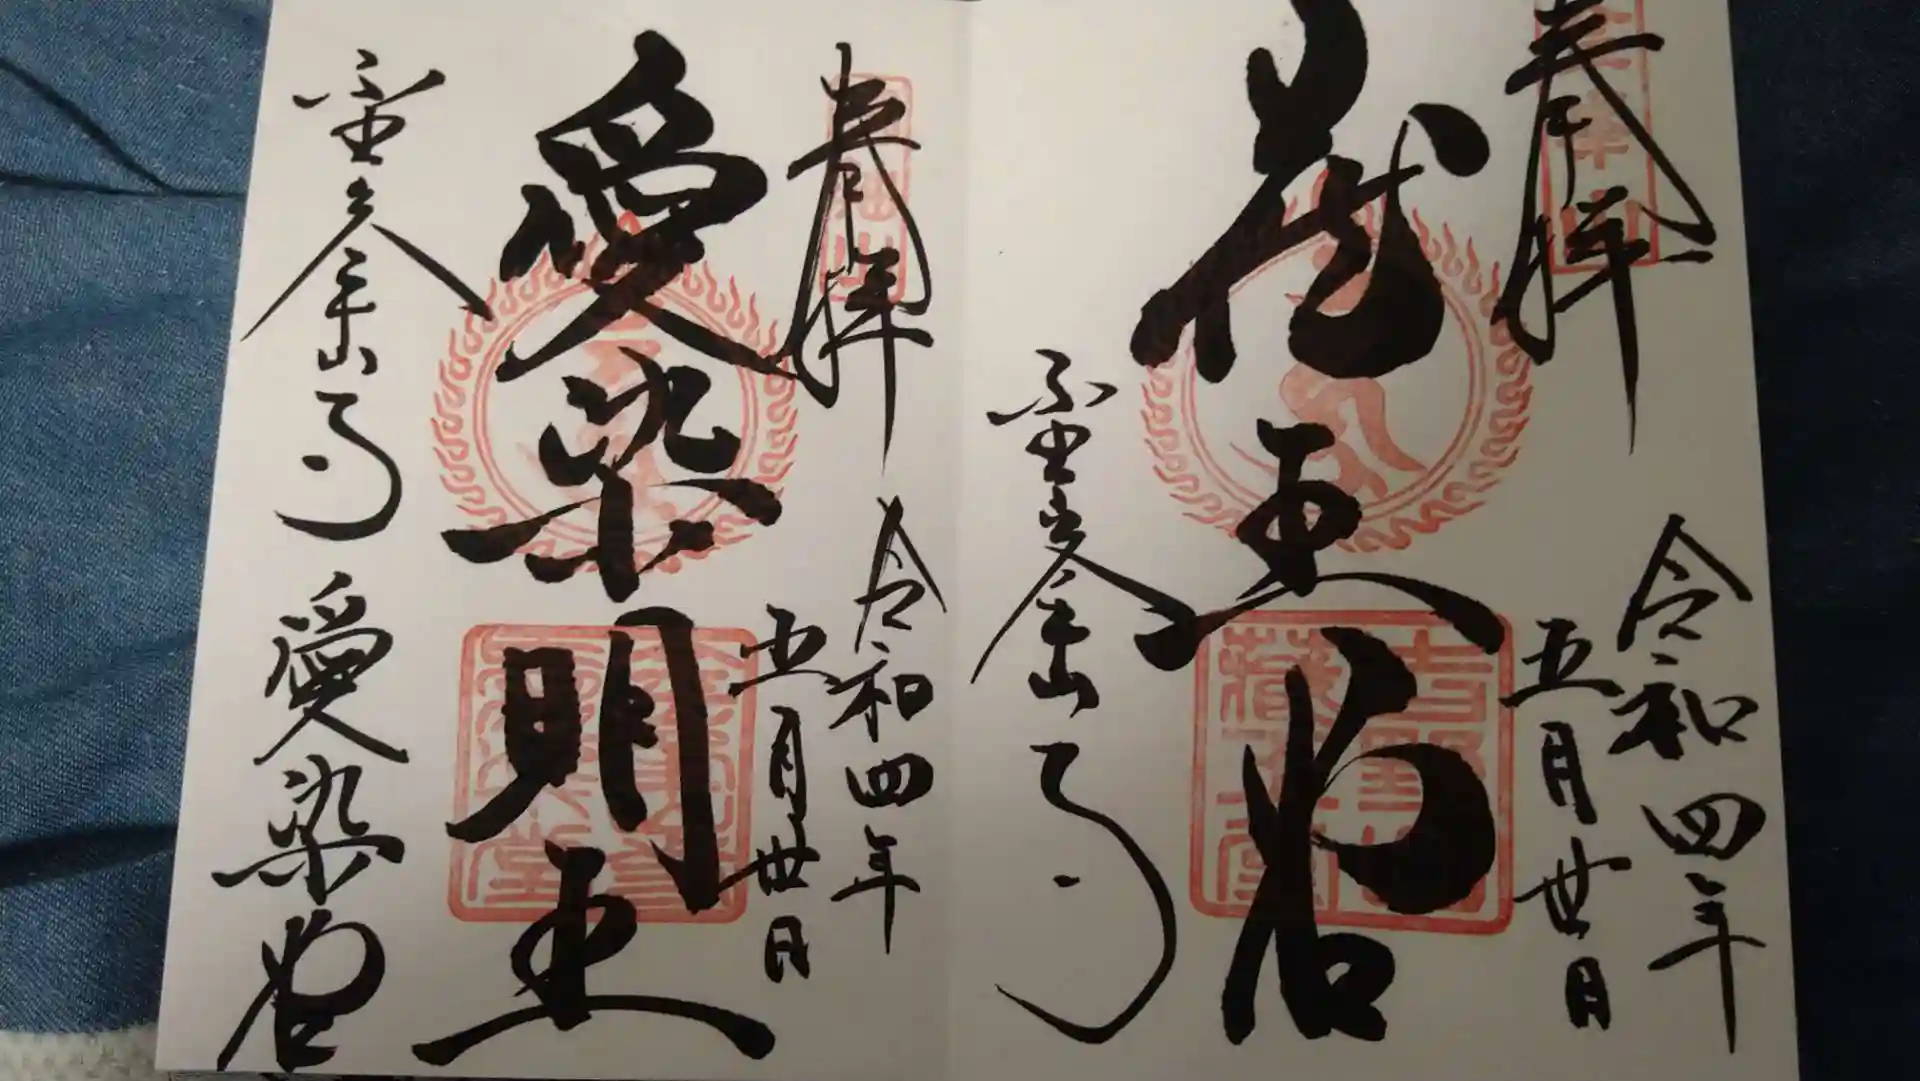 奉拝
令和四年
五月廿日
蔵王堂
金峯山寺
吉野山
藏王堂
奉拝
令和四年
五月廿日
愛染明王
金峯山寺
愛染堂